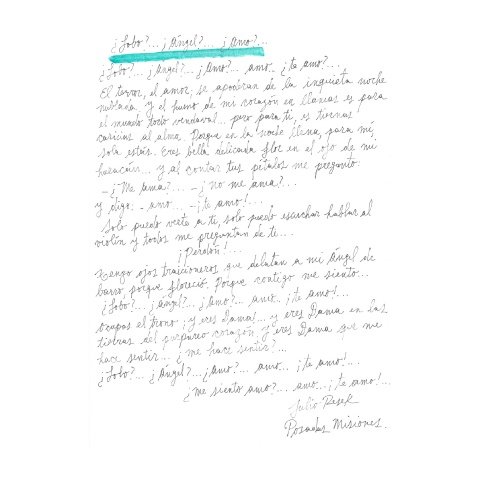 ¿Lobo?... ¿Ángel?... ¿Amo?...
¿Lobo?... ¿Ángel?... ¿Amo?... amo... ¿te amo?...
El terror, el amor, se apoderan de la inquieta noche
nublada y el humo de mi corazón en llamas es para
el mundo todo vendaval... pero para ti, es tiernas
caricias al alma. Porque en la noche llena para mí,
sola estás. Eres bella delicada flor en el ojo de mi
huracán... y al contar tus pétalos me pregunto.
- ¿Me ama?... - ¿No me ama?...
y digo. - amo... - ¡te amo!...
Solo puedo verte a ti, solo puedo escuchar hablar al
violín y todos me preguntan de ti...
¡Perdón!...
Tengo ojos traicioneros que delatan a mi ángel de
barro porque floreció. Porque contigo me siento...
¿Lobo?... ¿Ángel?... ¿Amo?... amo... ¡te amo!...
ocupas el trono, y eres Dama!... y eres Dama en las
tieblas del purpureo corazón, y eres Dama que me
hace sentir... ¿me hace sentir?...
¿Lobo?... ¿Ángel?... ¿Amo?... amo... ¡te amo!...
¿me siento amo?... amo... ¡te amo!...
Julio Resek
Posadas Misiones.